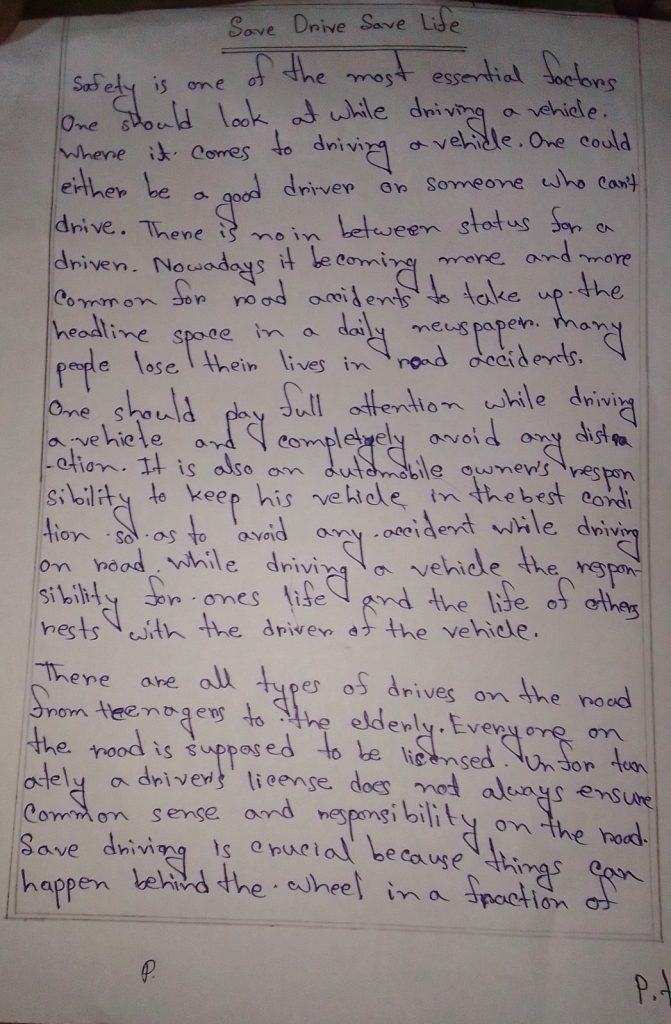 Save Drive Save Life
Safety is one of the most essential factors
One should look at while driving a vehicle.
Where it comes to driving a vehicle. One could
either be a good driver or someone who can't
drive. There is no in between status for a
driver. Nowadays it becoming more and more
Common for road accidents to take up the
headline space in a daily newspaper. Many
people lose their lives in road accidents.
One should pay full attention while driving
a vehicle and completely avoid any distra
-ction. It is also an automobile owner's respon
sibility to keep his vehicle in the best condi
tion so as to avoid any accident while driving
on road. While driving a vehicle the respon-
sibility for ones life and the life of others
rests with the driver of the vehicle.
There are all types of drives on the road
from teenagers to the elderly. Everyone on
the road is supposed to be lisensed. Unfortun
ately a driver's license does not always ensure
Common sense and responsibility on the road.
Save driving is crucial because things can
happen behind the wheel in a fraction of
P.
P.t